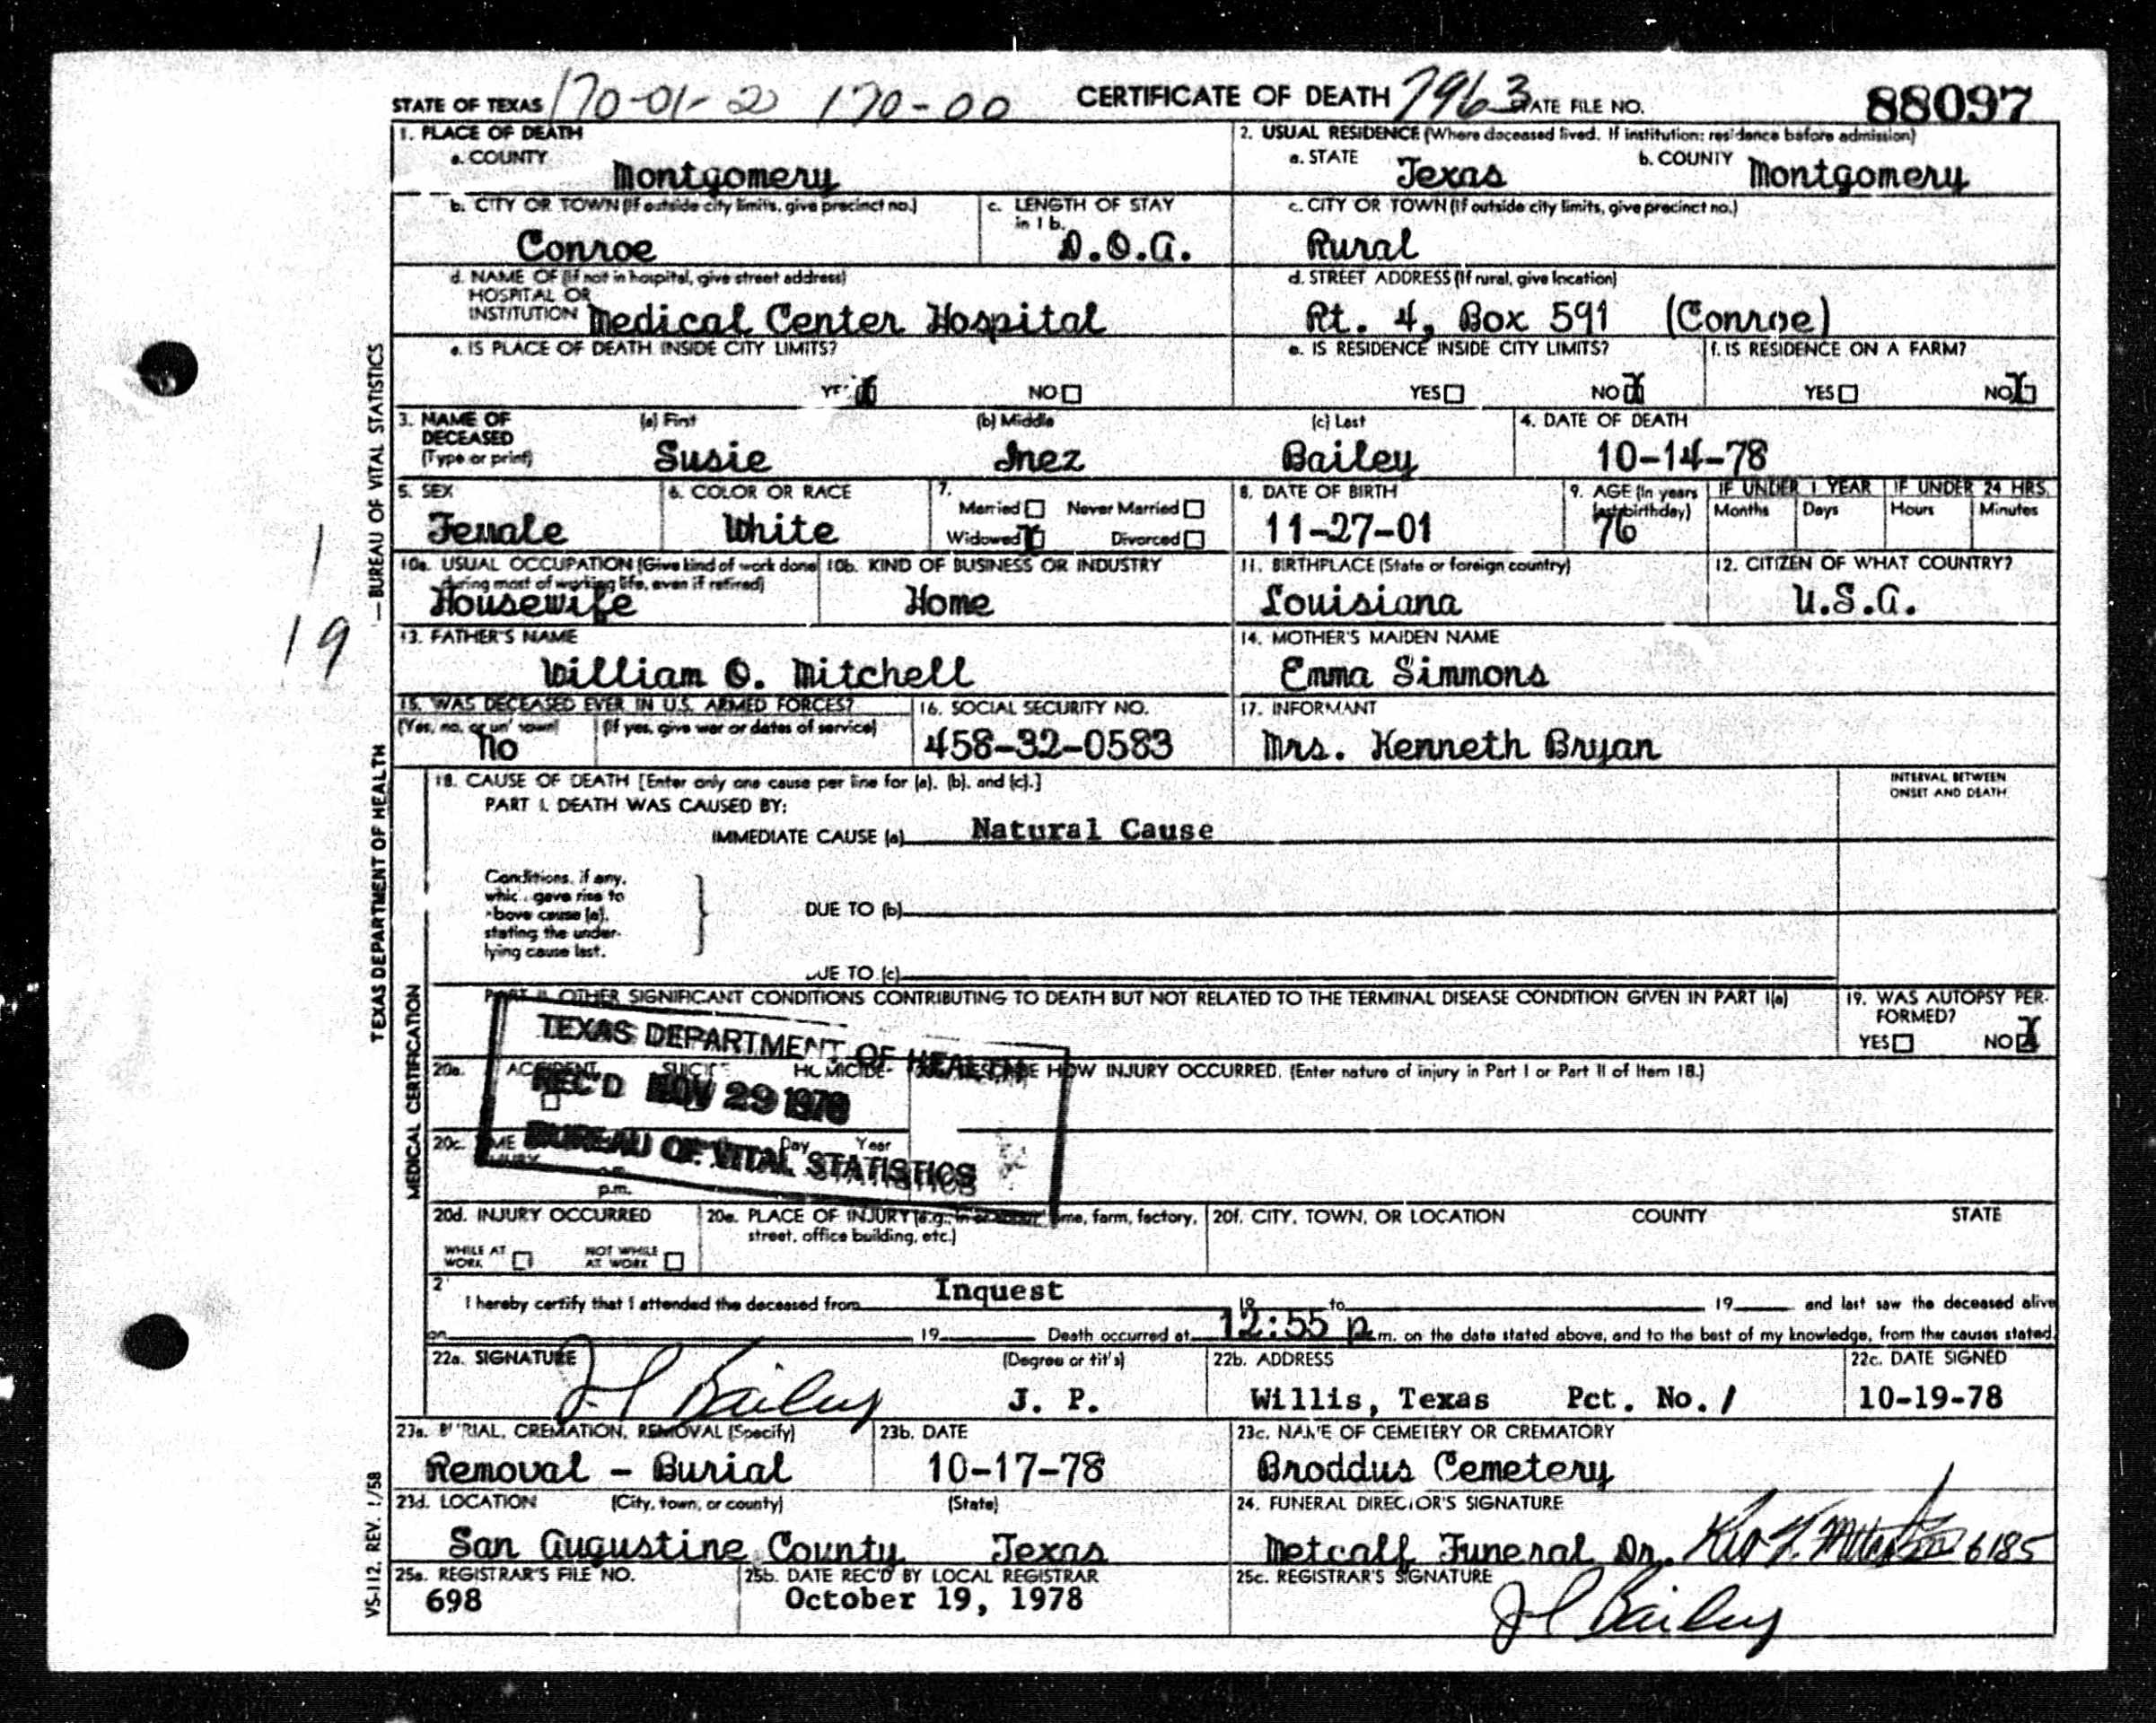 STATE OF TEXAS 170-01-2 170-00 CERTIFICATE OF DEATH 7963 STATE FILE NO. 88097
1. PLACE OF DEATH
a. COUNTY
Montgomery
2. USUAL RESIDENCE (Where deceased lived. If institution: residence before admission)
a. STATE Texas b. COUNTY Montgomery
b. CITY OR TOWN (If outside city limits, give precinct no.)
Conroe
c. LENGTH OF STAY
in 1 b.
D.O.A.
c. CITY OR TOWN (If outside city limits, give precinct no.)
Rural
d. NAME OF (If not in hospital, give street address)
HOSPITAL OR
INSTITUTION Medical Center Hospital
d. STREET ADDRESS (If rural, give location)
Rt. 4, Box 591 (Conroe)
e. IS PLACE OF DEATH INSIDE CITY LIMITS?
YES X NO
e. IS RESIDENCE INSIDE CITY LIMITS?
YES NO X
f. IS RESIDENCE ON A FARM?
YES NO X
3. NAME OF
DECEASED
(Type or print)
(a) First
Susie
(b) Middle
Inez
(c) Last
Bailey
4. DATE OF DEATH
10-14-78
5. SEX
Female
6. COLOR OR RACE
White
7.
Married Never Married
Widowed X Divorced
8. DATE OF BIRTH
11-27-01
9. AGE (In years
last birthday)
76
IF UNDER 1 YEAR
Months Days
IF UNDER 24 HRS.
Hours Minutes
10a. USUAL OCCUPATION (Give kind of work done
during most of working life, even if retired)
Housewife
10b. KIND OF BUSINESS OR INDUSTRY
Home
11. BIRTHPLACE (State or foreign country)
Louisiana
12. CITIZEN OF WHAT COUNTRY?
U.S.A.
13. FATHER'S NAME
William O. Mitchell
14. MOTHER'S MAIDEN NAME
Emma Simmons
15. WAS DECEASED EVER IN U.S. ARMED FORCES?
(Yes, no, or un' 'own)
No
(If yes, give war or dates of service)
16. SOCIAL SECURITY NO.
458-32-0583
17. INFORMANT
Mrs. Kenneth Bryan
18. CAUSE OF DEATH [Enter only one cause per line for (a), (b), and (c).]
PART I. DEATH WAS CAUSED BY:
IMMEDIATE CAUSE (a) Natural Cause
INTERVAL BETWEEN
ONSET AND DEATH
Conditions, if any,
whic. gave rise to
above cause (a),
stating the under-
lying cause last.
DUE TO (b)
DUE TO (c)
PART II. OTHER SIGNIFICANT CONDITIONS CONTRIBUTING TO DEATH BUT NOT RELATED TO THE TERMINAL DISEASE CONDITION GIVEN IN PART I(a)
19. WAS AUTOPSY PER-
FORMED?
YES NO X
TEXAS DEPARTMENT OF HEALTH
REC'D NOV 29 1978
BUREAU OF VITAL STATISTICS
20a. ACCIDENT SUICIDE HOMICIDE
DESCRIBE HOW INJURY OCCURRED. (Enter nature of injury in Part I or Part II of Item 18.)
20c. TIME Day Year
INJURY
p.m.
20d. INJURY OCCURRED
WHILE AT
WORK
NOT WHILE
AT WORK
20e. PLACE OF INJURY (e.g., in or about home, farm, factory,
street, office building, etc.)
20f. CITY, TOWN, OR LOCATION COUNTY STATE
2 I hereby certify that I attended the deceased from Inquest 19 to 19 and last saw the deceased alive
on 19 Death occurred at 12:55 p.m. on the date stated above, and to the best of my knowledge, from the causes stated.
22a. SIGNATURE (Degree or title)
J L Bailey J. P.
22b. ADDRESS
Willis, Texas Pct. No. 1
22c. DATE SIGNED
10-19-78
23a. BURIAL, CREMATION, REMOVAL (Specify)
Removal - Burial
23b. DATE
10-17-78
23c. NAME OF CEMETERY OR CREMATORY
Broddus Cemetery
23d. LOCATION (City, town, or county) (State)
San Augustine County Texas
24. FUNERAL DIRECTOR'S SIGNATURE
Metcalf Funeral Dr. 6185
25a. REGISTRAR'S FILE NO.
698
25b. DATE REC'D BY LOCAL REGISTRAR
October 19, 1978
25c. REGISTRAR'S SIGNATURE
J L Bailey
TEXAS DEPARTMENT OF HEALTH — BUREAU OF VITAL STATISTICS
MEDICAL CERTIFICATION
VS-112, REV. 1/58
1
19